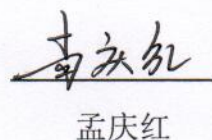 孟庆红
孟庆红